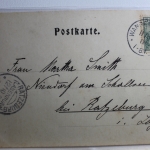 Postkarte.
Frau Martha Smith
Niendorf am Schallsee
bei Ratzeburg
i. L